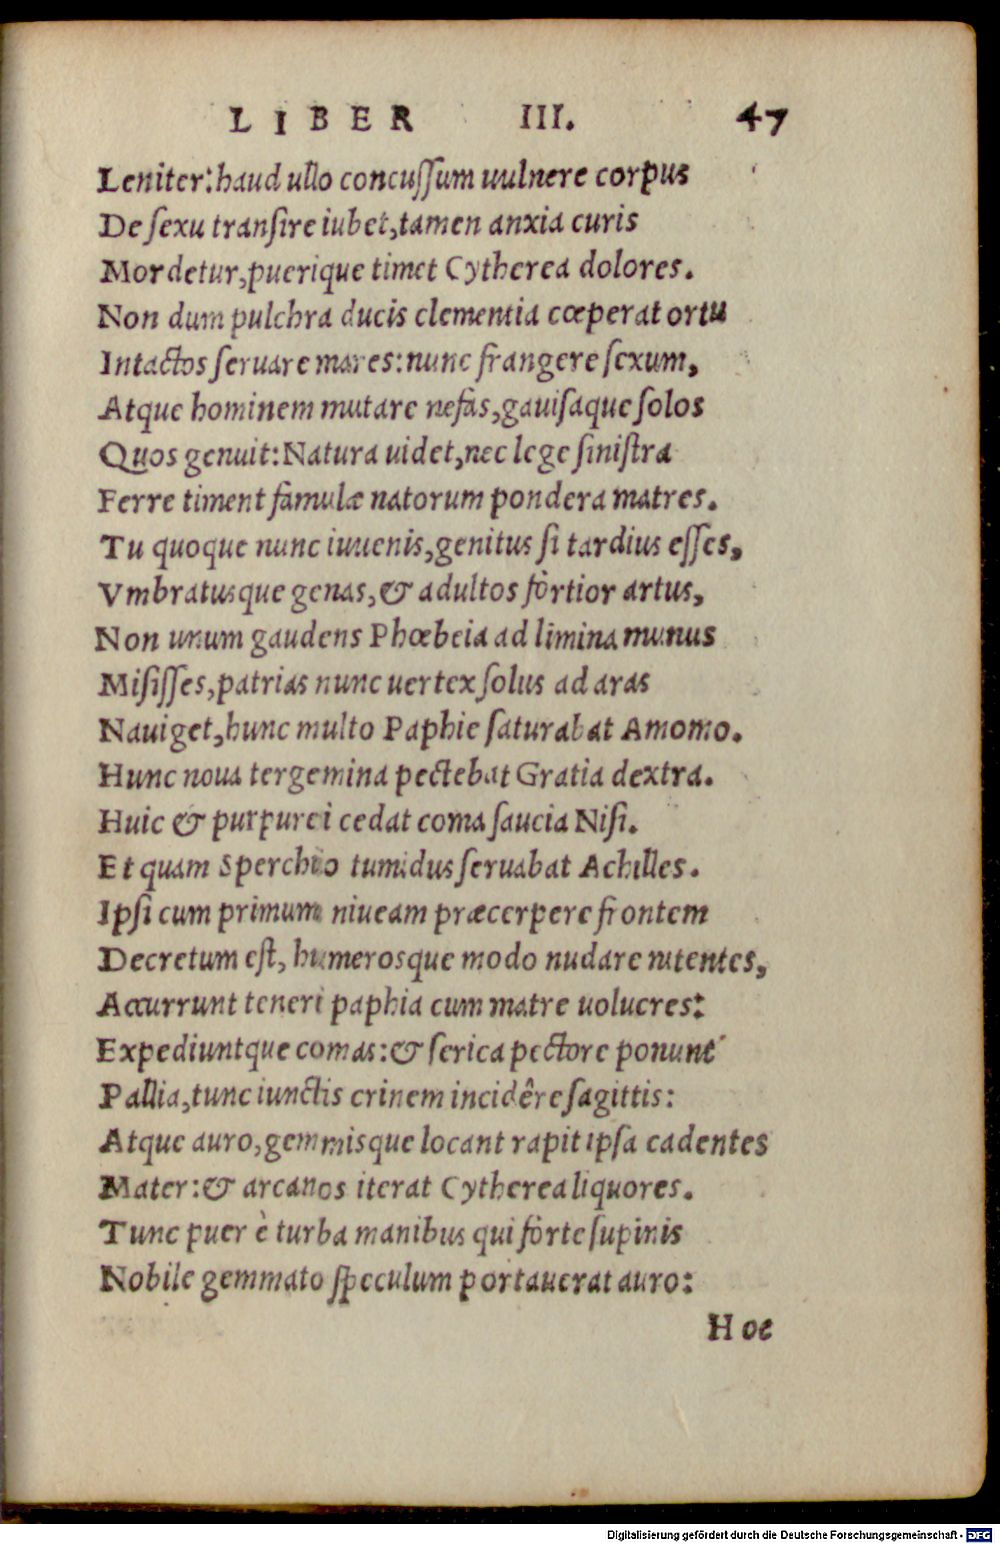 LIBER III. 47
Leniter: haud ullo concussum uulnere corpus
De sexu transire iubet, tamen anxia curis
Mordetur, puerique timet Cytherea dolores.
Non dum pulchra ducis clementia cœperat ortu
Intactos seruare mares: nunc frangere sexum,
Atque hominem mutare nefas, gauisaque solos
Quos genuit: Natura uidet, nec lege sinistra
Ferre timent famulæ natorum pondera matres.
Tu quoque nunc iuuenis, genitus si tardius esses,
Vmbratusque genas, & adultos fòrtior artus,
Non unum gaudens Phœbeia ad limina munus
Misisses, patrias nunc uertex solus ad aras
Nauiget, hunc multo Paphie saturabat Amomo.
Hunc noua tergemina pectebat Gratia dextra.
Huic & purpurei cedat coma saucia Nisi.
Et quam Sperchio tumidus seruabat Achilles.
Ipsi cum primum niueam præcerpere frontem
Decretum est, humerosque modo nudare nitentes,
Accurrunt teneri paphia cum matre uolucres:
Expediuntque comas: & serica pectore ponunt
Pallia, tunc iunctis crinem incidêre sagittis:
Atque auro, gemmisque locant rapit ipsa cadentes
Mater: & arcanos iterat Cytherea liquores.
Tunc puer è turba manibus qui fòrte supinis
Nobile gemmato speculum portauerat auro:
Hoc
Digitalisierung gefördert durch die Deutsche Forschungsgemeinschaft - DFG